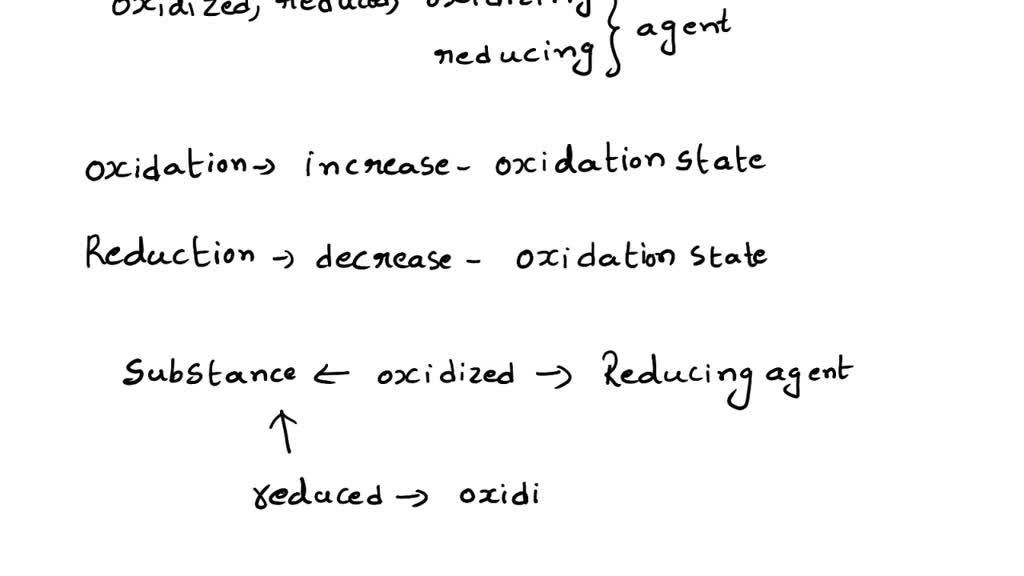 oxidized, reduced, oxidizing
reducing } agent
oxidation → increase - oxidation state
Reduction → decrease - oxidation state
Substance ← oxidized → Reducing agent
↑
reduced → oxidi